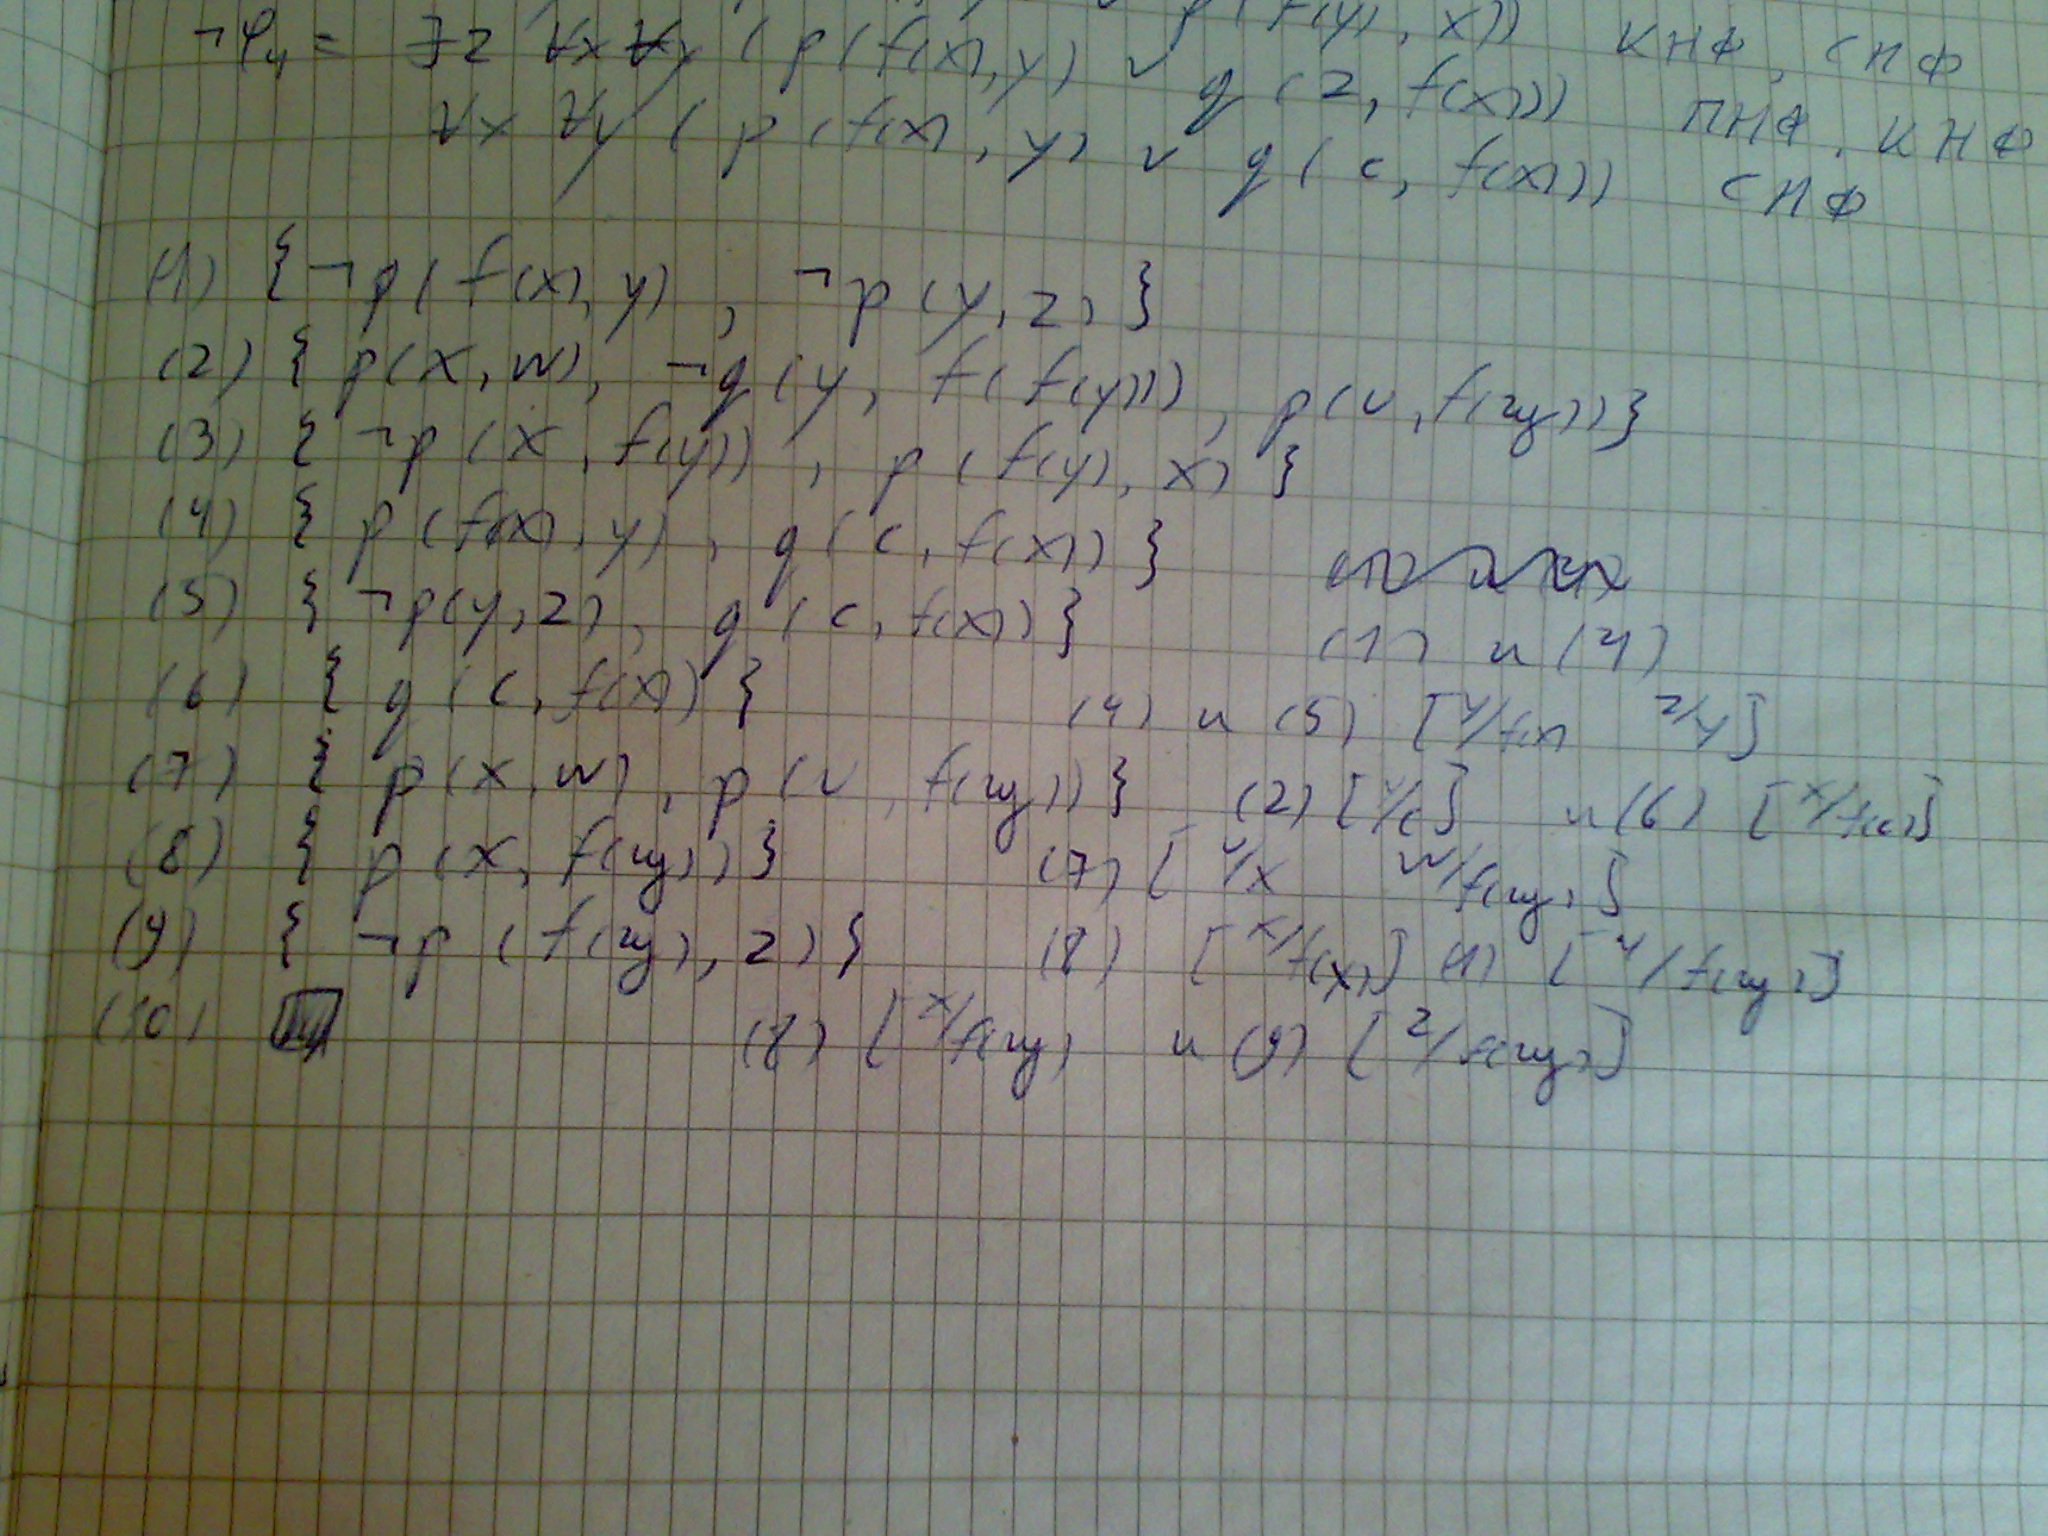 p(f(y), x)) КНФ, СНФ
¬φ₄ = ∃z ∀x ∀y (p(f(x), y) ∨ q(z, f(x))) ПНФ, КНФ
∀x ∀y (p(f(x), y) ∨ q(c, f(x))) СНФ
(1) {¬p(f(x), y), ¬p(y, z)}
(2) {p(x, w), ¬q(y, f(f(y))), p(v, f(u))}
(3) {¬p(x, f(y)), p(f(y), x)}
(4) {p(f(x), y), q(c, f(x))}
(5) {¬p(y, z), q(c, f(x))} (1) и (4)
(6) {q(c, f(x))} (4) и (5) [y/f(x) z/y]
(7) {p(x, w), p(v, f(u))} (2) [y/c] и (6) [x/f(c)]
(8) {p(x, f(u))} (7) [v/x w/f(u)]
(9) {¬p(f(u), z)} (8) [x/f(x)] (1) [y/f(u)]
(10) (8) [x/f(u) и (9) [z/f(u)]